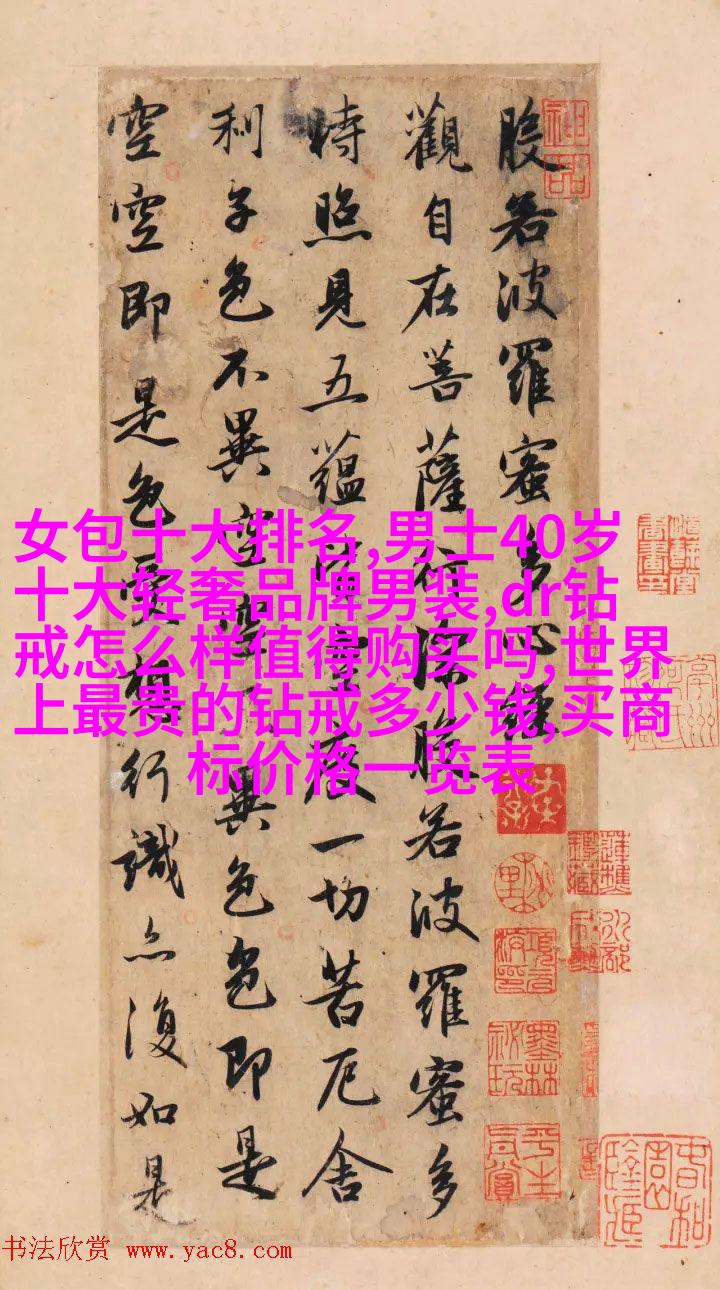 女包十大排名,男士40岁
十大轻奢品牌男装,dr钻
戒怎么样值得购买吗,世界
上最贵的钻戒多少钱,买商
标价格一览表
般若波羅蜜多心經
觀自在菩薩行深般若波羅蜜多
時照見五蘊皆空度一切苦厄舍
利子色不異空空不異色色即是
空空即是色受想行識亦復如是
神品
墨林
秘玩
书法欣赏 www.yac8.com